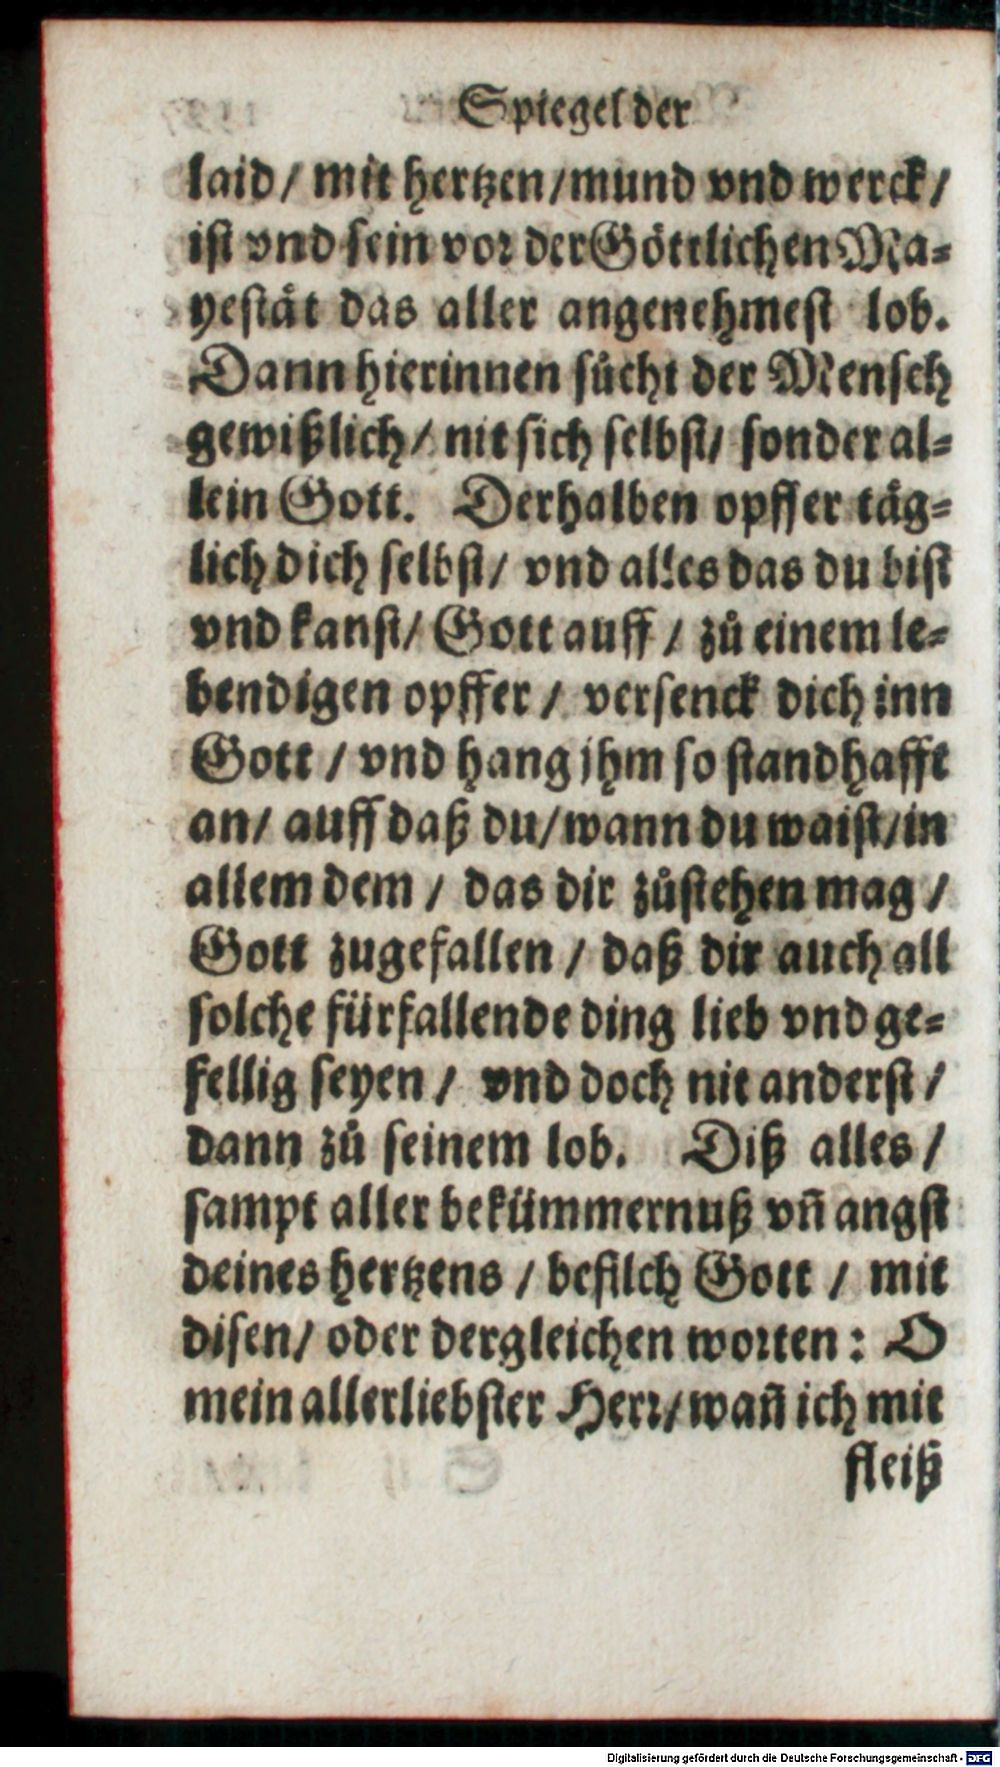 Spiegel der
laid/ mit hertzen/mund vnd werck/
ist vnd sein vor der Göttlichen Ma⸗
yestät das aller angenehmest lob.
Dann hierinnen sůcht der Mensch
gewißlich/ nit sich selbst/ sonder al⸗
lein Gott. Derhalben opffer täg⸗
lich dich selbst/ vnd alles das du bist
vnd kanst/ Gott auff / zů einem le⸗
bendigen opffer / versenck dich inn
Gott / vnd hang jhm so standhafft
an/ auff daß du/wann du waist/in
allem dem / das dir zůstehen mag /
Gott zugefallen / daß dir auch all
solche fürfallende ding lieb vnd ge⸗
fellig seyen / vnd doch nit anderst /
dann zů seinem lob. Diß alles /
sampt aller bekümmernuß vñ angst
deines hertzens / befilch Gott / mit
disen/ oder dergleichen worten: O
mein allerliebster Herr/wañ ich mit
fleiß
Digitalisierung gefördert durch die Deutsche Forschungsgemeinschaft - DFG